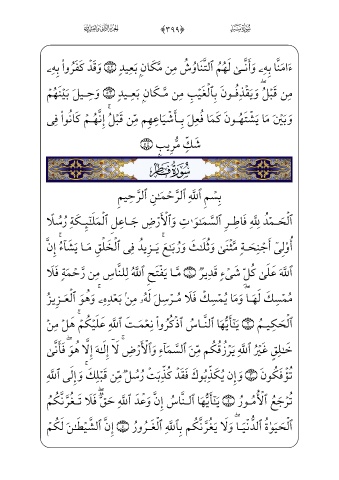 سُورَةُ سَبَإٍ ﴿٣٩٩﴾ الجزء الثاني والعشرون
ءَامَنَّا بِهِۦ وَأَنَّىٰ لَهُمُ ٱلتَّنَاوُشُ مِن مَّكَانٍۭ بَعِيدٍ وَقَدْ كَفَرُوا۟ بِهِۦ
مِن قَبْلُ ۖ وَيَقْذِفُونَ بِٱلْغَيْبِ مِن مَّكَانٍۭ بَعِيدٍ وَحِيلَ بَيْنَهُمْ
وَبَيْنَ مَا يَشْتَهُونَ كَمَا فُعِلَ بِأَشْيَاعِهِم مِّن قَبْلُ ۚ إِنَّهُمْ كَانُوا۟ فِى
شَكٍّ مُّرِيبٍۭ
سُورَةُ فَاطِرٍ
بِسْمِ ٱللَّهِ ٱلرَّحْمَٰنِ ٱلرَّحِيمِ
ٱلْحَمْدُ لِلَّهِ فَاطِرِ ٱلسَّمَٰوَٰتِ وَٱلْأَرْضِ جَاعِلِ ٱلْمَلَٰٓئِكَةِ رُسُلًا
أُو۟لِىٓ أَجْنِحَةٍ مَّثْنَىٰ وَثُلَٰثَ وَرُبَٰعَ ۚ يَزِيدُ فِى ٱلْخَلْقِ مَا يَشَآءُ ۚ إِنَّ
ٱللَّهَ عَلَىٰ كُلِّ شَىْءٍ قَدِيرٌ مَّا يَفْتَحِ ٱللَّهُ لِلنَّاسِ مِن رَّحْمَةٍ فَلَا
مُمْسِكَ لَهَا ۖ وَمَا يُمْسِكْ فَلَا مُرْسِلَ لَهُۥ مِنۢ بَعْدِهِۦ ۚ وَهُوَ ٱلْعَزِيزُ
ٱلْحَكِيمُ يَٰٓأَيُّهَا ٱلنَّاسُ ٱذْكُرُوا۟ نِعْمَتَ ٱللَّهِ عَلَيْكُمْ ۚ هَلْ مِنْ
خَٰلِقٍ غَيْرُ ٱللَّهِ يَرْزُقُكُم مِّنَ ٱلسَّمَآءِ وَٱلْأَرْضِ ۚ لَآ إِلَٰهَ إِلَّا هُوَ ۖ فَأَنَّىٰ
تُؤْفَكُونَ وَإِن يُكَذِّبُوكَ فَقَدْ كُذِّبَتْ رُسُلٌ مِّن قَبْلِكَ ۚ وَإِلَى ٱللَّهِ
تُرْجَعُ ٱلْأُمُورُ يَٰٓأَيُّهَا ٱلنَّاسُ إِنَّ وَعْدَ ٱللَّهِ حَقٌّ ۖ فَلَا تَغُرَّنَّكُمُ
ٱلْحَيَوٰةُ ٱلدُّنْيَا ۖ وَلَا يَغُرَّنَّكُم بِٱللَّهِ ٱلْغَرُورُ إِنَّ ٱلشَّيْطَٰنَ لَكُمْ